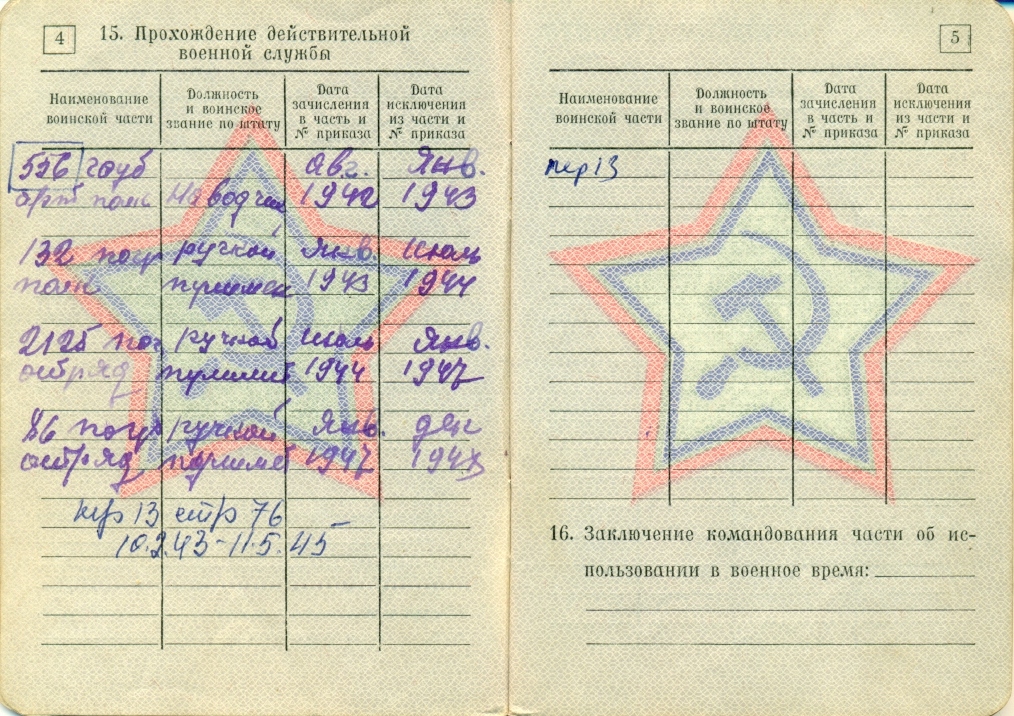 4
15. Прохождение действительной
военной службы
Наименование
воинской части
Должность
и воинское
звание по штату
Дата
зачисления
в часть и
№ приказа
Дата
исключения
из части и
№ приказа
556 гауб авг. Янв.
арт полк Наводчик 1942 1943
132 погр ручной Янв. Июль
полк пулемет 1943 1944
2125 пог ручной Июль Янв.
отряд пулимет 1944 1947
86 погр ручной Янв. дек
отряд пулимет 1947
пер 13 стр 76
10.2.43-11.5.45
5
Наименование
воинской части
Должность
и воинское
звание по штату
Дата
зачисления
в часть и
№ приказа
Дата
исключения
из части и
№ приказа
пер 13
16. Заключение командования части об ис-
пользовании в военное время: